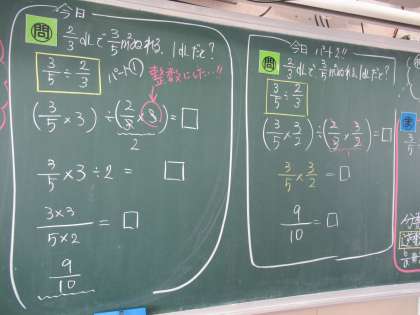 今日
問 2/3 dLで 3/5 m²ぬれる。1dLだと?
3/5 ÷ 2/3
パート①
整数にしたい!!
(3/5 × 3) ÷ (2/3 × 3) = □
2
3/5 × 3 ÷ 2 = □
3×3/5×2 = □
9/10
今日 パート2!!
問 2/3 dLで 3/5 m²ぬれる。1dLだと?
3/5 ÷ 2/3
(3/5 × 3/2) ÷ (2/3 × 3/2) = □
1
3/5 × 3/2 = □
9/10 = □
3/5